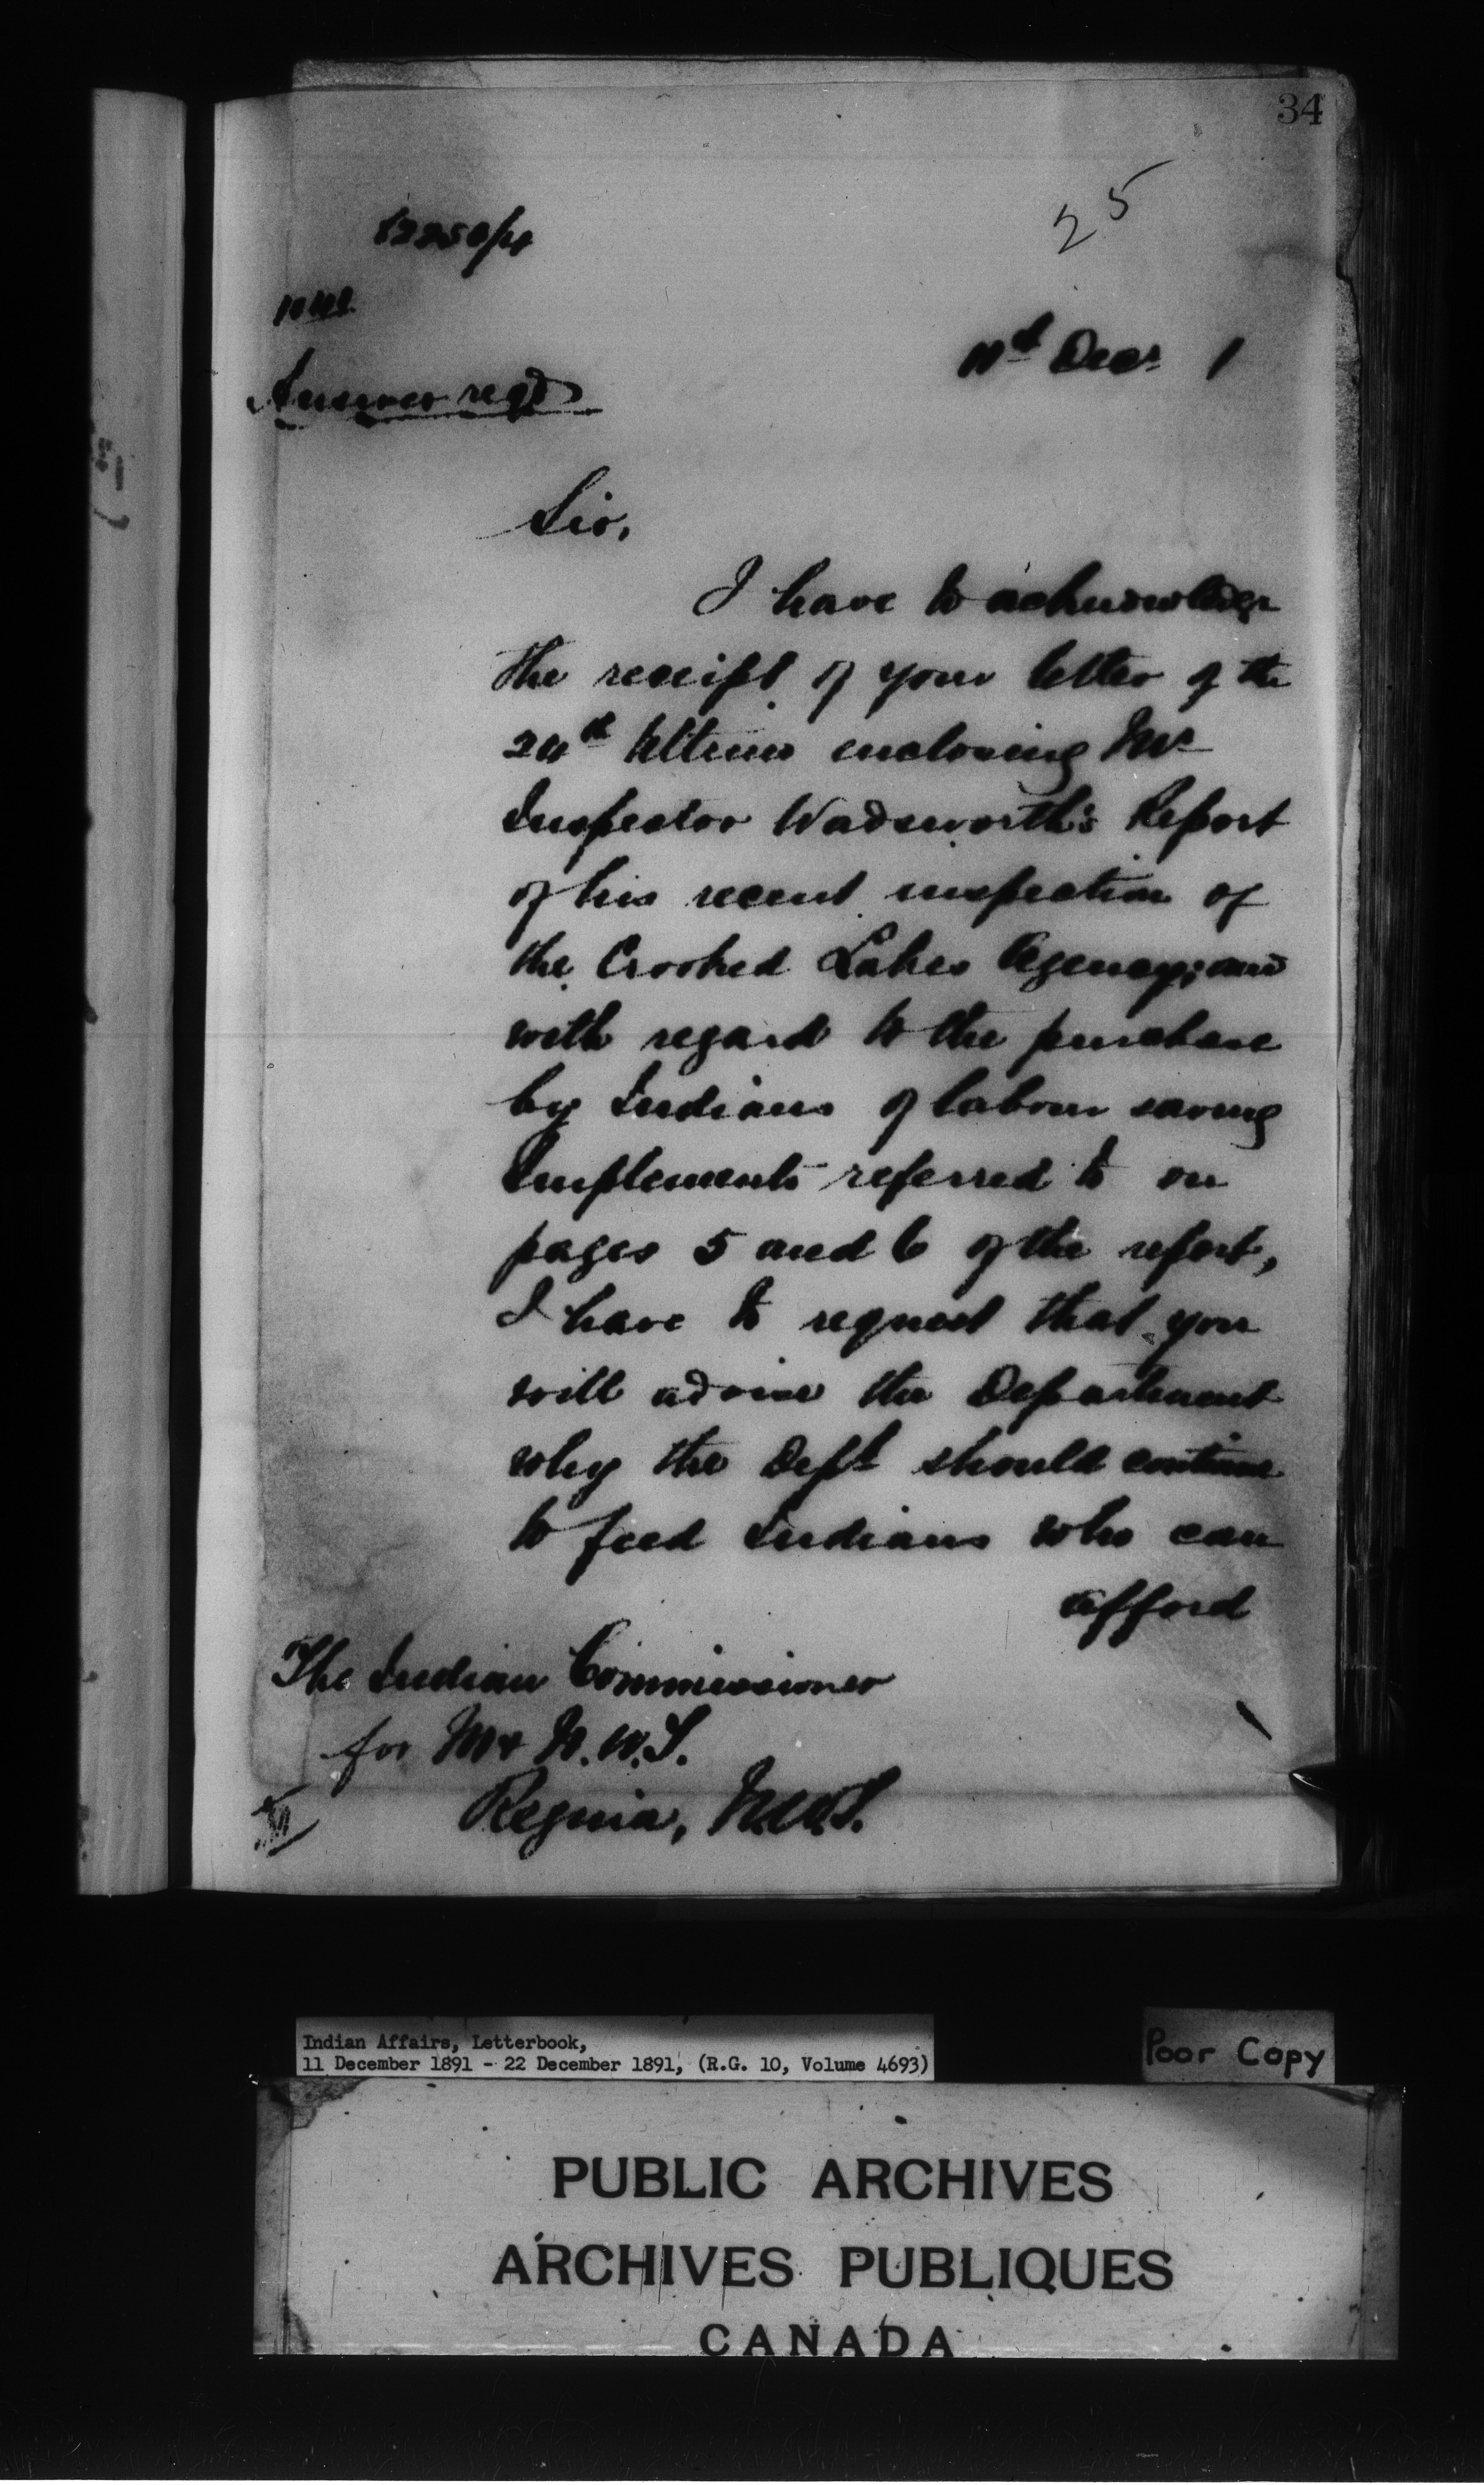 34
25
11th Decr 1
Answer reqd
Sir,
I have to acknowledge
the receipt of your letter of the
24th Ultimo enclosing Mr
Inspector Wadsworth's Report
of his recent inspection of
the Crooked Lakes Agency; and
with regard to the purchase
by Indians of labour saving
Implements referred to on
pages 5 and 6 of the report,
I have to request that you
will advise the Department
why the Dept should continue
to feed Indians who can
afford
The Indian Commissioner
for M & N.W.T.
Regina, N.W.T.
Indian Affairs, Letterbook,
11 December 1891 - 22 December 1891, (R.G. 10, Volume 4693)
Poor Copy
PUBLIC ARCHIVES
ARCHIVES PUBLIQUES
CANADA